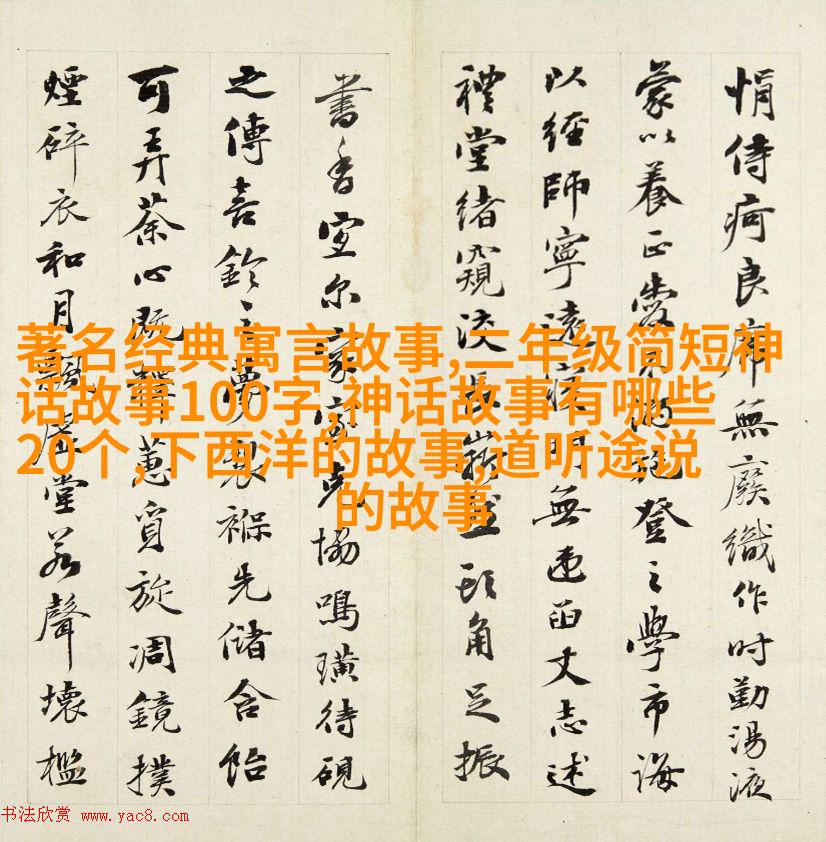 著名经典寓言故事,二年级简短神
话故事100字,神话故事有哪些
20个,下西洋的故事,道听途说
的故事
侍疴良無廢織作时勤湯液
蒙以養正愛登之學市海
以經師寧遠明無丈志述
禮堂緒窺頭角足振
書香室尔協鳴璜待硯
之傳喜鈴褓先儲含飴
可弄茶心既蕙質旋凋鏡撲
煙碎衣和月虛堂若聲壞檻
书法欣赏 www.yac8.com